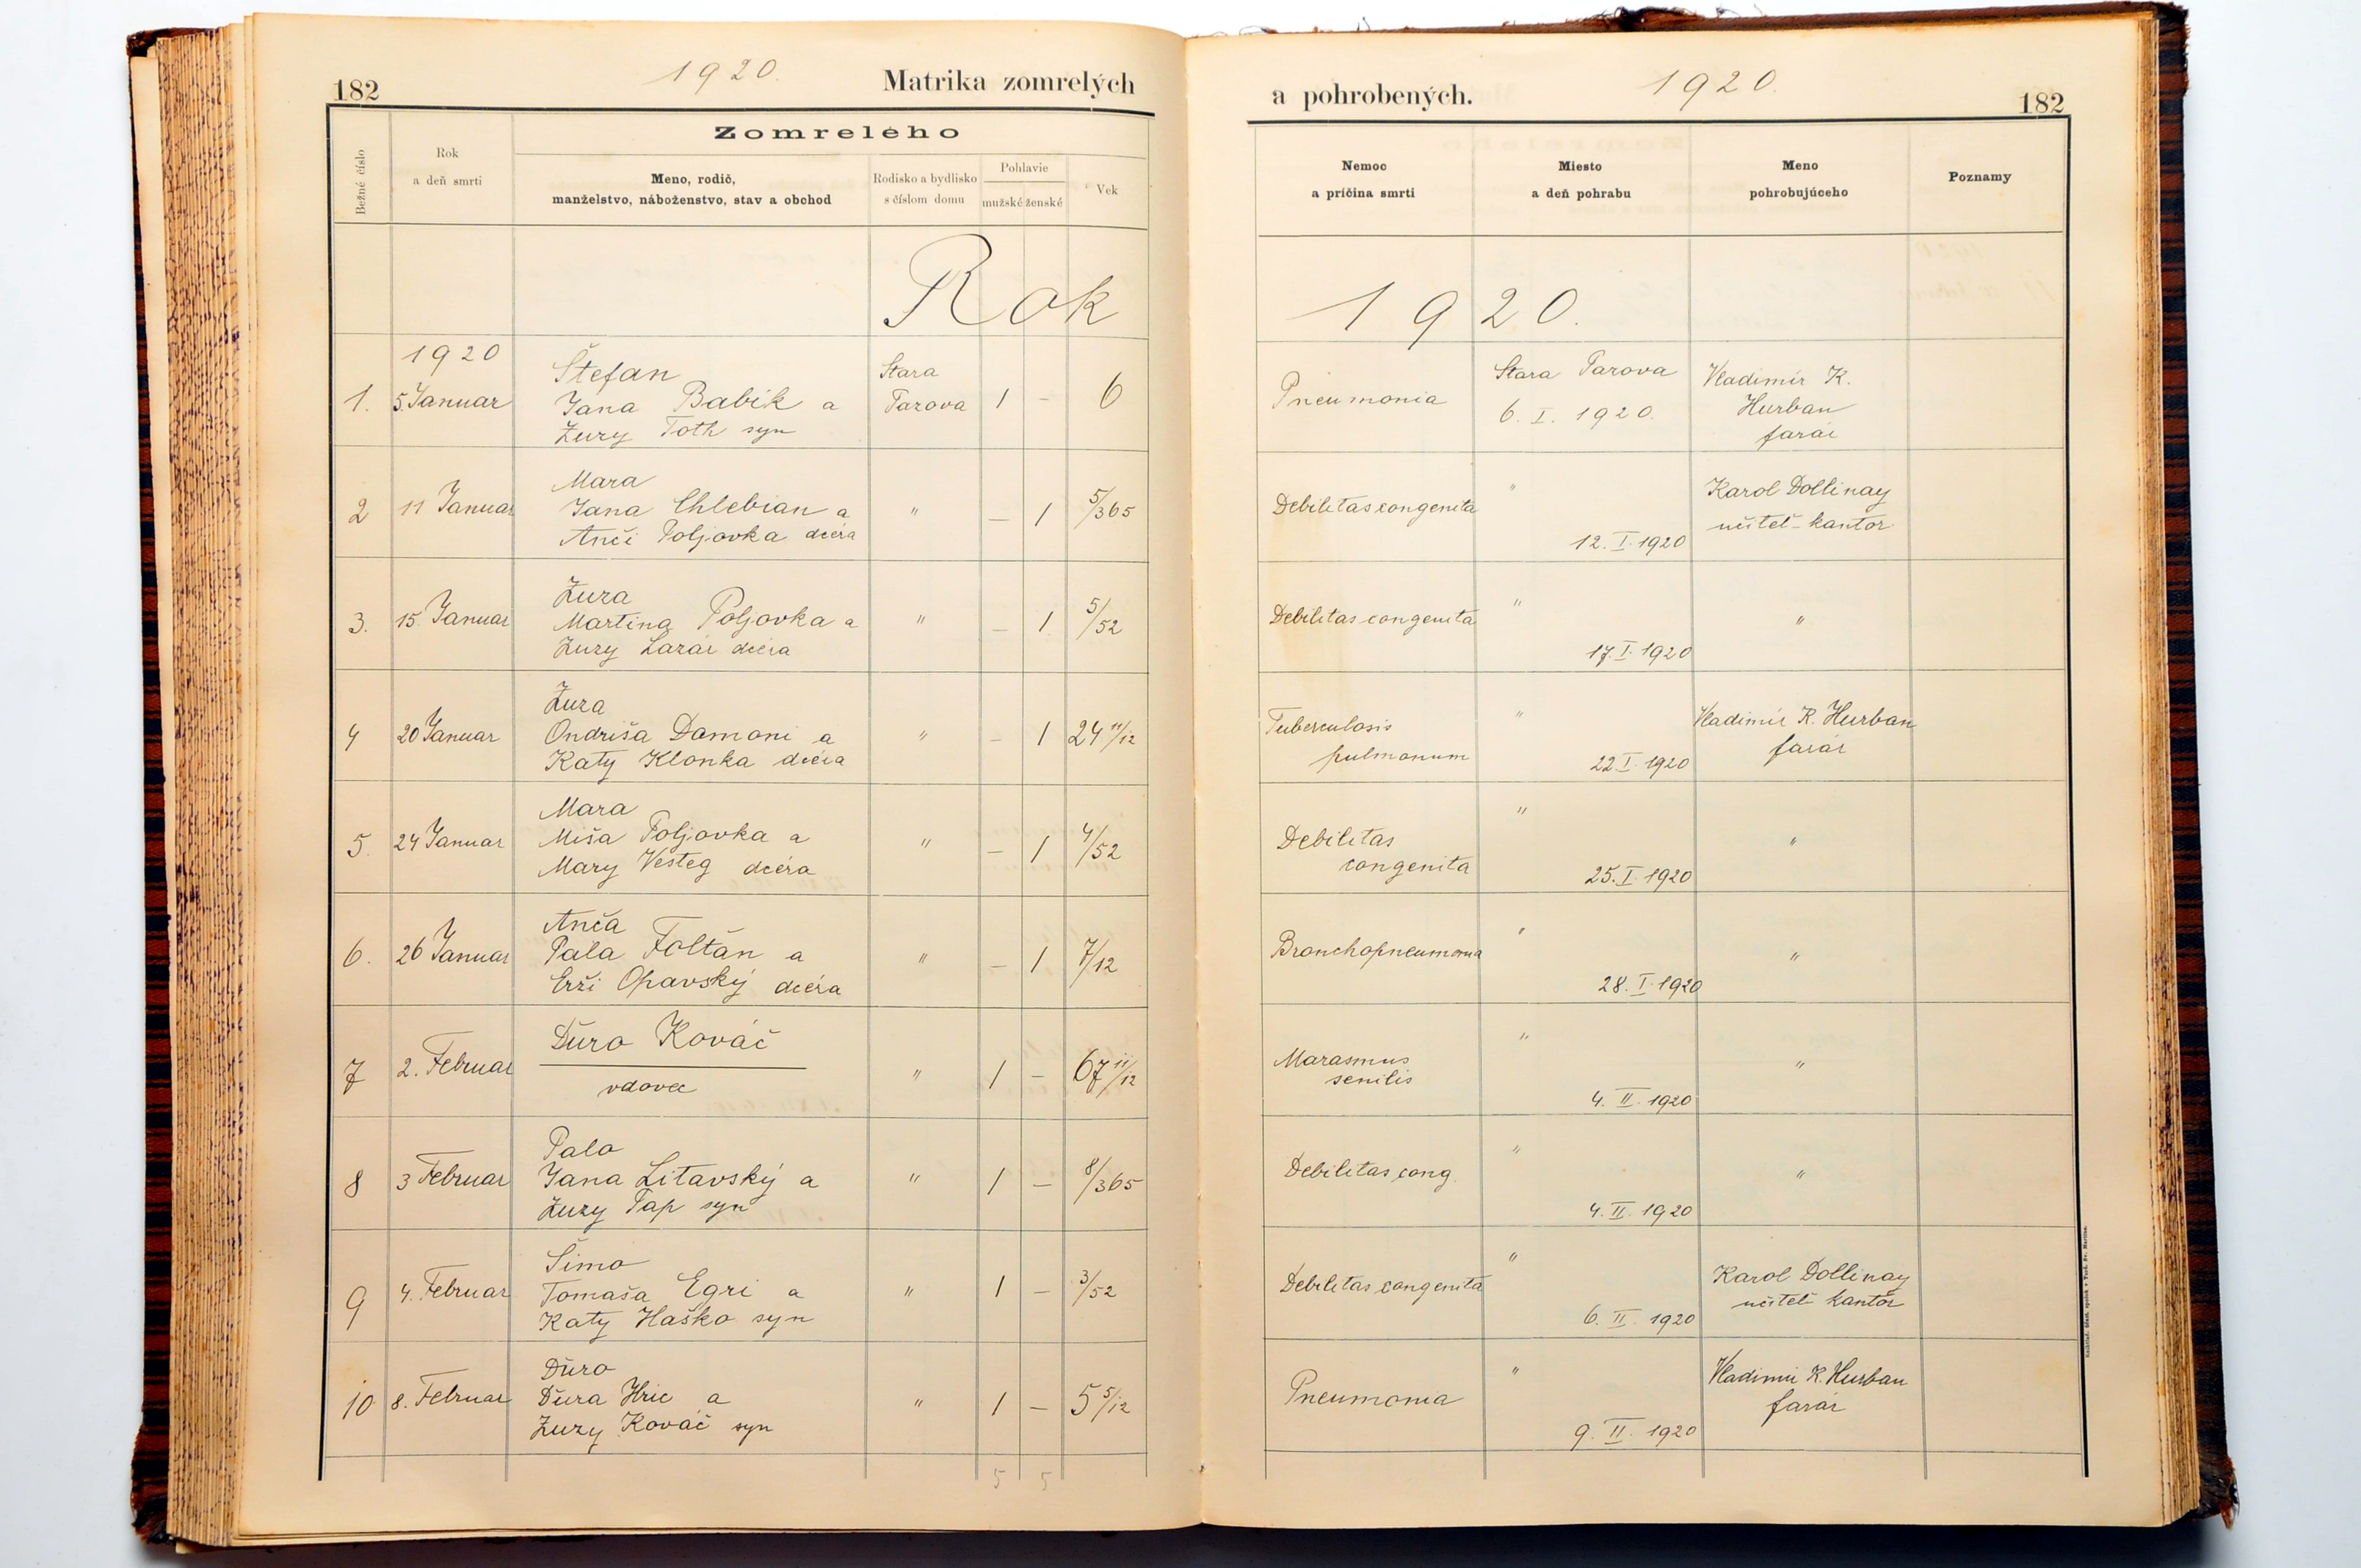 182
1920.
Matrika zomrelých
a pohrobených.
1920.
182
Bežné číslo
Rok
a deň smrti
Zomrelého
Meno, rodič,
manželstvo, náboženstvo, stav a obchod
Rodisko a bydlisko
s číslom domu
Pohlavie
mužské ženské
Vek
Nemoc
a príčina smrti
Miesto
a deň pohrabu
Meno
pohrobujúceho
Poznamy
Rok
1920.
1920
1. 5. Januar
Štefan
Jana Babik a
Zuzy Toth syn
Stara
Pazova
1 – 6
Pneumonia
Stara Pazova
6. I. 1920.
Vladimír K.
Hurban
farár
2 11 Januar
Mara
Jana Chlebian a
Anči Poljovka dcéra
" – 1 5/365
Debilitas congenita
"
12. I. 1920
Karol Dollinay
učiteľ-kantor
3. 15. Januar
Zuza
Martina Poljovka a
Zuzy Lazár dcéra
" – 1 5/52
Debilitas congenita
"
17. I. 1920
"
4 20 Januar
Zuza
Ondriša Damoni a
Katy Klonka dcéra
" – 1 24 11/12
Tuberculosis
pulmonum
"
22 I. 1920
Vladimír K. Hurban
farár
5. 24 Januar
Mara
Miša Poljovka a
Mary Vesteg dcéra
" – 1 4/52
Debilitas
congenita
"
25. I. 1920
"
6. 26 Januar
Anča
Pala Foltán a
Erži Opavský dcéra
" – 1 7/12
Bronchopneumonia
"
28. I. 1920
"
7 2. Februar
Ďuro Kováč
vdovec
" 1 – 67 11/12
Marasmus
senilis
"
4. II. 1920
"
8 3 Februar
Palo
Jana Litavský a
Zuzy Pap syn
" 1 – 8/365
Debilitas cong.
"
4. II. 1920
"
9 4. Februar
Šimo
Tomaša Egri a
Katy Haško syn
" 1 – 3/52
Debilitas congenita
"
6. II. 1920
Karol Dollinay
učiteľ kantor
10 8. Februar
Ďuro
Ďura Hric a
Zuzy Kováč syn
" 1 – 5 5/12
Pneumonia
"
9. II. 1920
Vladimír K. Hurban
farár
5 5